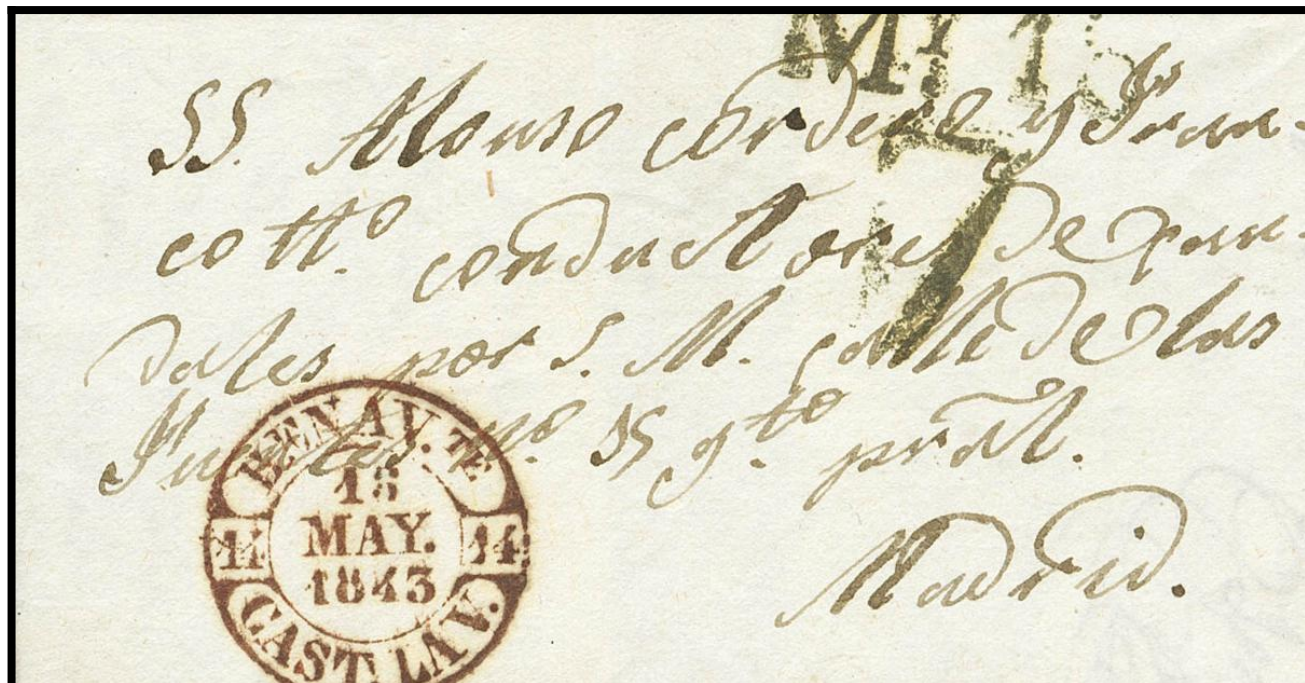 SS. Alonso cordero y Fran-
co tt.º conductores de cau-
dales por S. M. calle de las
Fuentes nº. 35 prāl.
Madrid.
BENAV.TE
15
MAY.
1843
14 14
CAST. LA V.
7